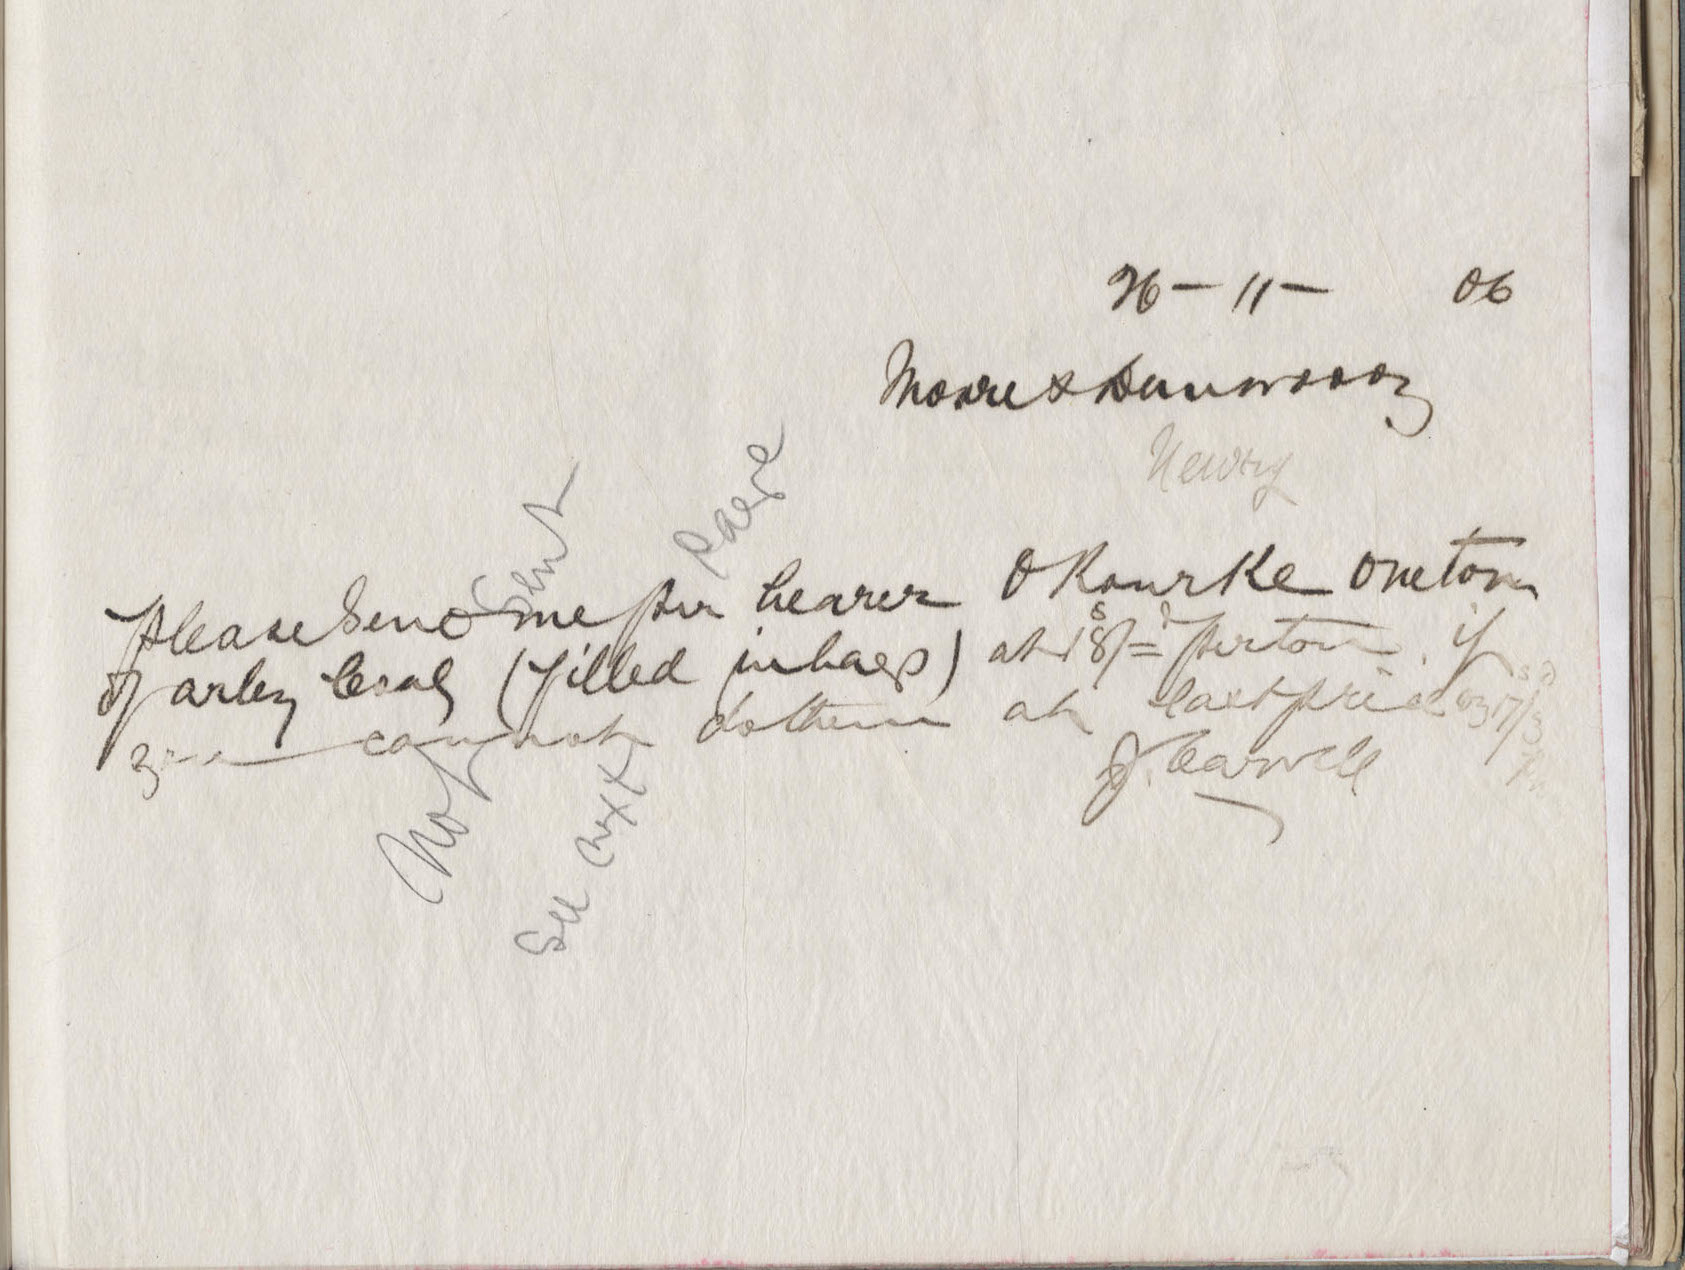 26 - 11 - 06
Moore & Dunwoody
Newry
Please Send me per bearer O Rourke One ton
of arley Coal (filled in bags) at 18s/=d per ton. if
you cannot do them at last price of 17s/3d
J. Carvill
Not Sent
See next Page